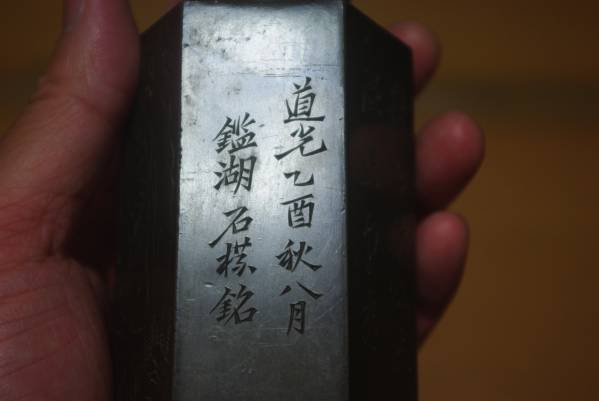 道光乙酉秋八月
鑑湖石楳銘